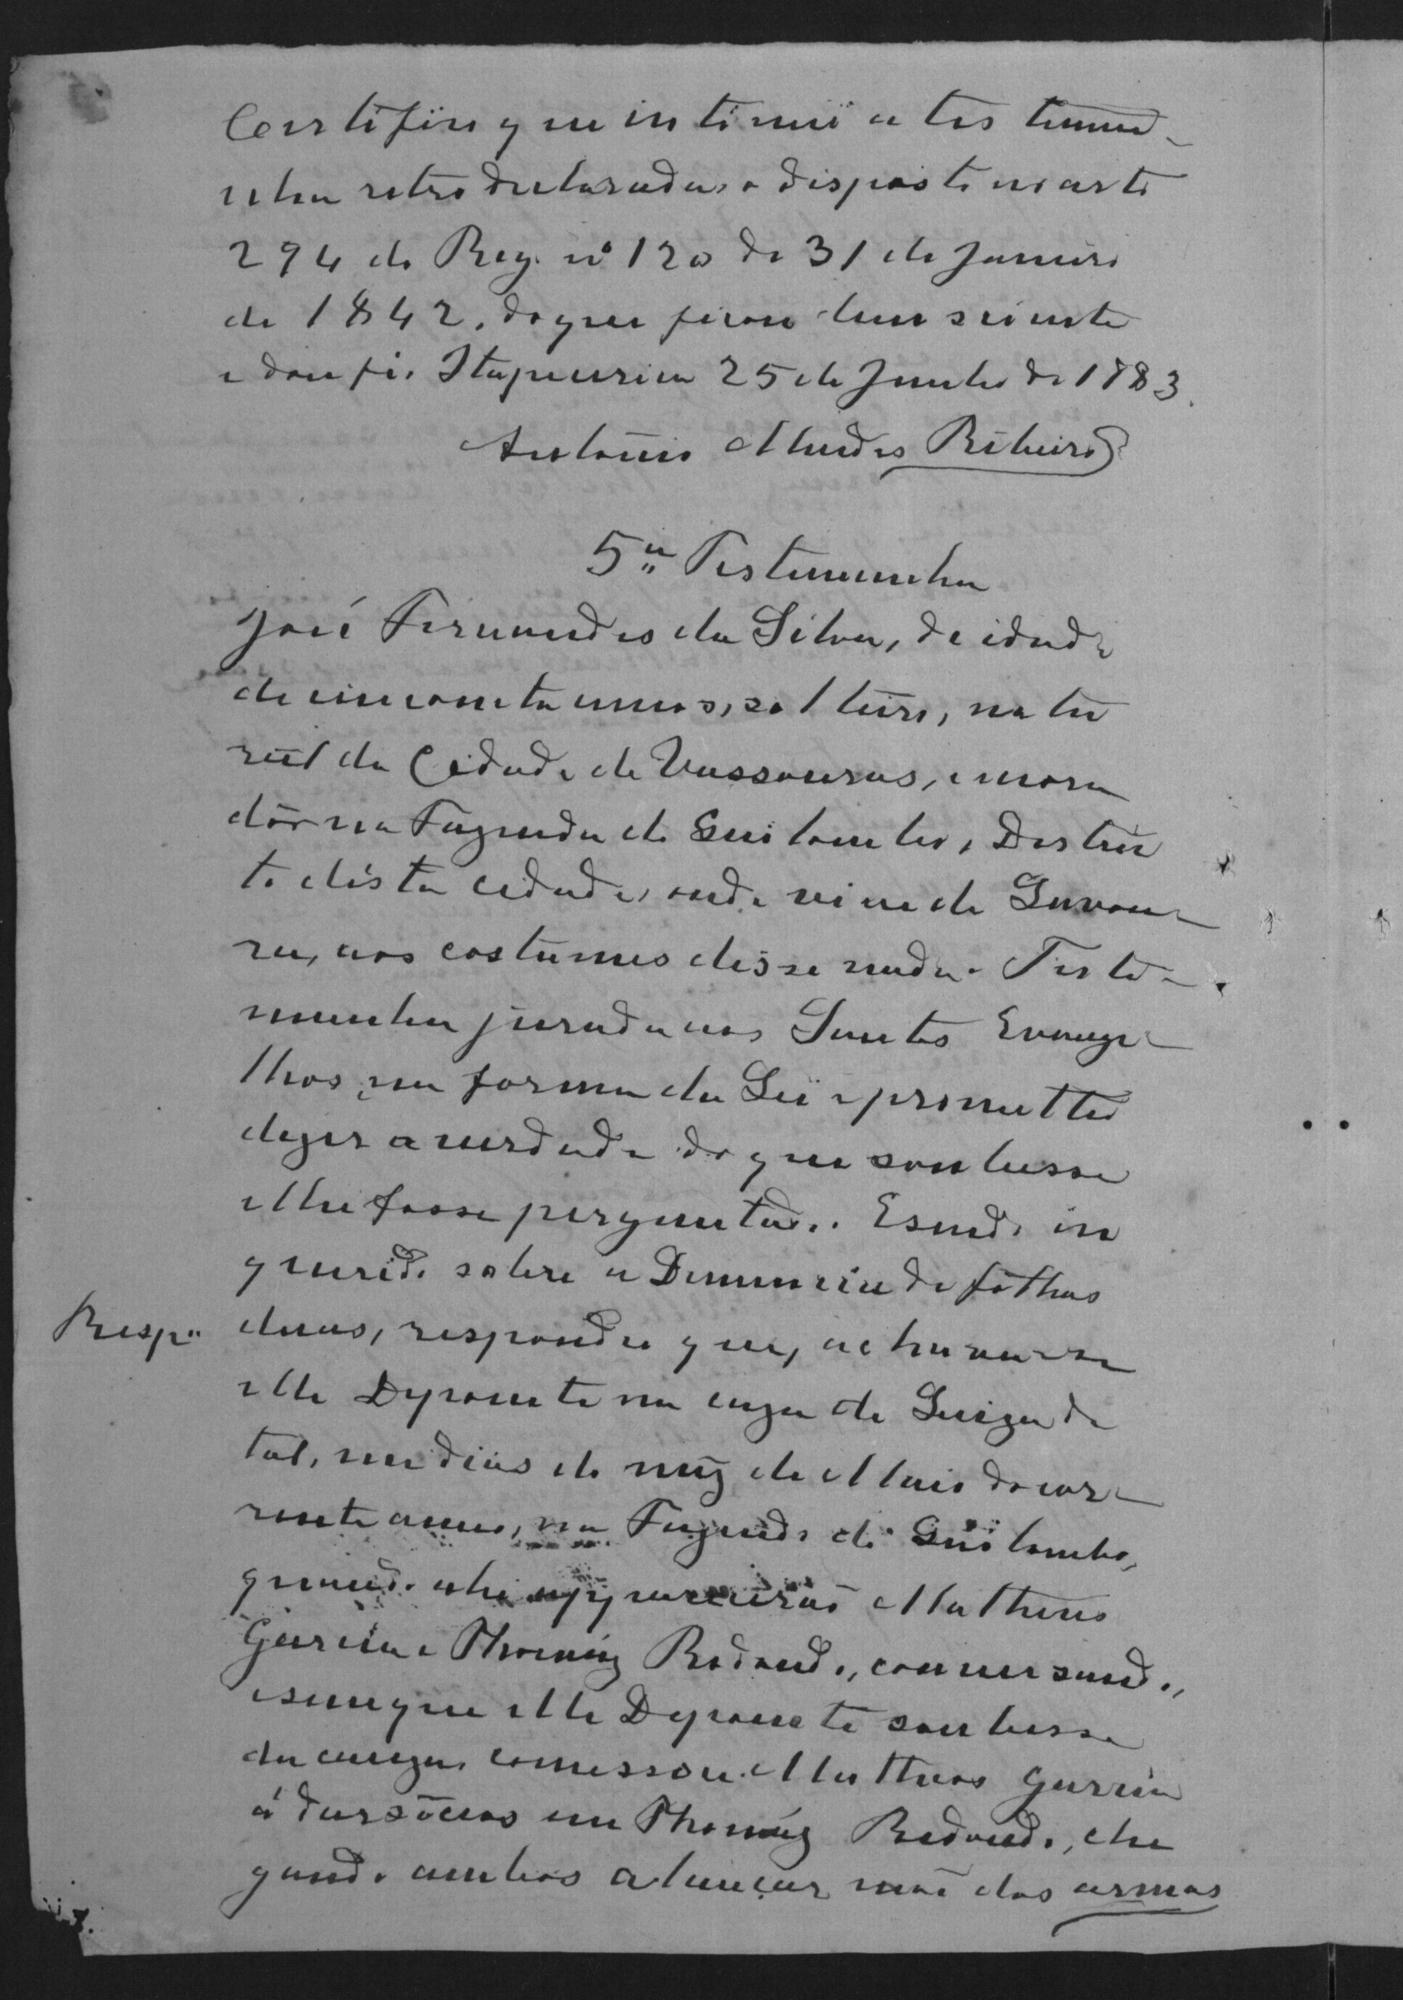 Certifico que intimei a testemu-
nha retro declarada, o disposto no arto
294 do Reg. nº 120 de 31 de Janeiro
de 1842, do que ficou bem sciente
e dou fé. Itapemirim 25 de Junho de 1883.
Antônio Mendes Ribeiro
5ª Testemunha
José Fernandes da Silva, de idade
de cincoenta annos, solteiro, natu
ral da Cidade de Vassouras, e mora
dôr na Fazenda do Quilombo, Destric
to désta cidade, onde vive de Lavou-
ra, aos costumes disse nada. Teste-
munha jurada aos Santos Evange-
lhos, na forma da Lei e prometteo
dizer a verdade do que soubesse
e lhe fosse perguntado. E sendo in
querido sobre a Denuncia de fôlhas
Respº duas, respondeo que, achava-se
elle Depoente na caza de Luiza de
tal, em dias do mêz de Maio do cor-
rente anno, na Fazenda do Quilombo,
quando ahi apparecerão Matheus
Garcia e Thomáz Redondo, conversando,
e sem que elle Depoente soubesse
da cauza, comessou Matheos Garcia
á dar sôccos em Thomáz Redondo, che
gando ambos a lançar mão das armas